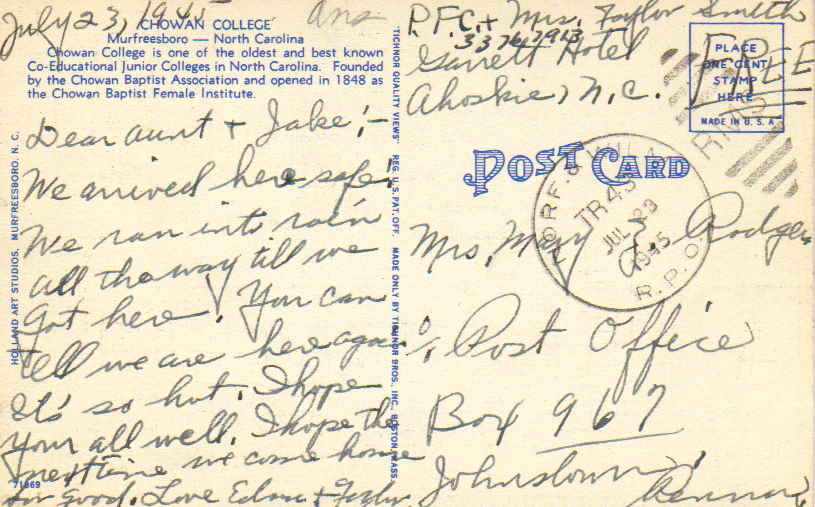 July 23, 1945
Ans
CHOWAN COLLEGE
Murfreesboro — North Carolina
Chowan College is one of the oldest and best known
Co-Educational Junior Colleges in North Carolina. Founded
by the Chowan Baptist Association and opened in 1848 as
the Chowan Baptist Female Institute.
Dear aunt + Jake;—
We arrived here safe.
We ran into rain
all the way till we
Got here. You can
tell we are here again
It's so hot. I hope
your all well. I hope the
next time we come home
for good. Love Edna + Taylor
71869
HOLLAND ART STUDIOS, MURFREESBORO, N. C.
"TICHNOR QUALITY VIEWS" REG. U.S. PAT. OFF. MADE ONLY BY TICHNOR BROS., INC. BOSTON, MASS.
P.F.C. + Mrs. Taylor Smith
33767913
Garrett Hotel
Ahoskie, N.C.
FREE
PLACE
ONE CENT
STAMP
HERE
MADE IN U. S. A.
RMS
POST CARD
NORF. &
TR43
JUL 23
1945
R.P.O.
Mrs. Mary J. Rodgers
% Post Office
Box 967
Johnstown,
Penna.